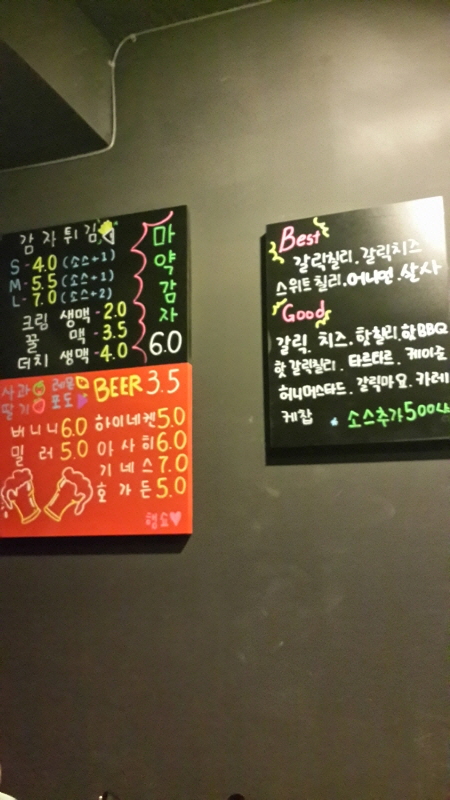 감자튀김
S-4.0 (소스+1)
M-5.5 (소스+1)
L-7.0 (소스+2)
크림 생맥-2.0
꿀 맥-3.5
더치 생맥-4.0
마약감자
6.0
사과 레몬
딸기 포도
BEER 3.5
버니니 6.0
밀러 5.0
하이네켄 5.0
아사히 6.0
기네스 7.0
호가든 5.0
Best
갈릭칠리. 갈릭치즈
스위트칠리. 어니언. 살사
Good
갈릭. 치즈. 핫칠리. 핫BBQ
핫갈릭칠리. 타르타르. 케이준
허니머스타드. 갈릭마요. 카레
케찹
소스추가 500